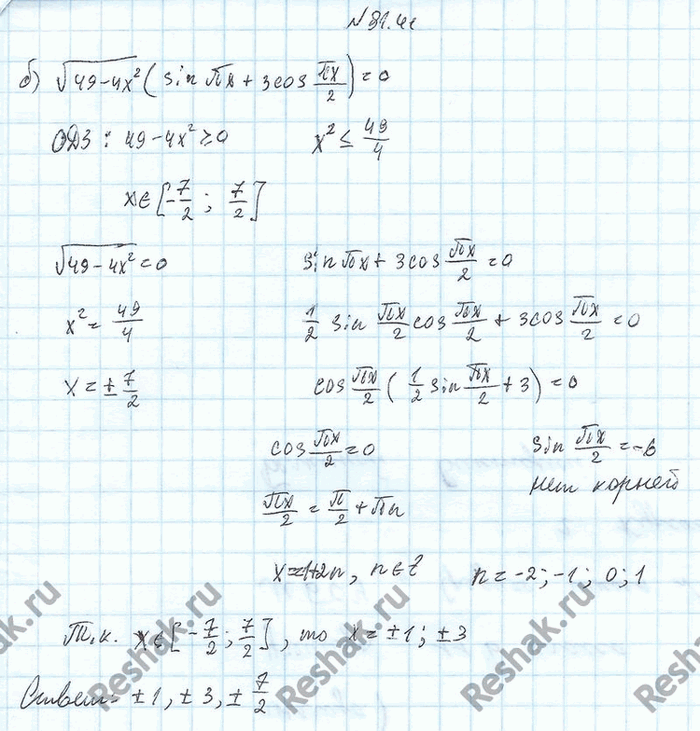 №31.41
б) √(49-4x²) (sin πx + 3cos πx/2) = 0
ОДЗ: 49-4x² ≥ 0    x² ≤ 49/4
x ∈ [-7/2; 7/2]
√(49-4x²) = 0    sin πx + 3cos πx/2 = 0
x² = 49/4    1/2 sin πx/2 cos πx/2 + 3cos πx/2 = 0
x = ± 7/2    cos πx/2 (1/2 sin πx/2 + 3) = 0
cos πx/2 = 0    sin πx/2 = -6
πx/2 = π/2 + πn    нет корней
x = 1+2n, n ∈ Z    n = -2; -1; 0; 1
Т.к. x ∈ [-7/2; 7/2], то x = ±1; ±3
Ответ: ±1, ±3, ± 7/2
Reshak.ru
Reshak.ru
Reshak.ru
Reshak.ru